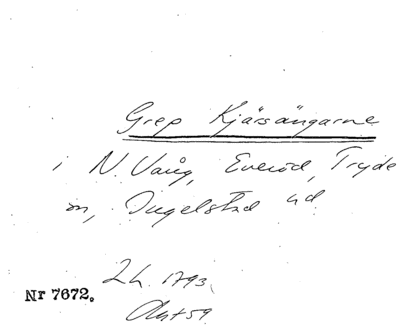 Grep Kjärsängarne
i N. Vång, Everöd, Tryde
sn, Ingelstad hd
2 h. 1793.
Nr 7672.
Akt 59